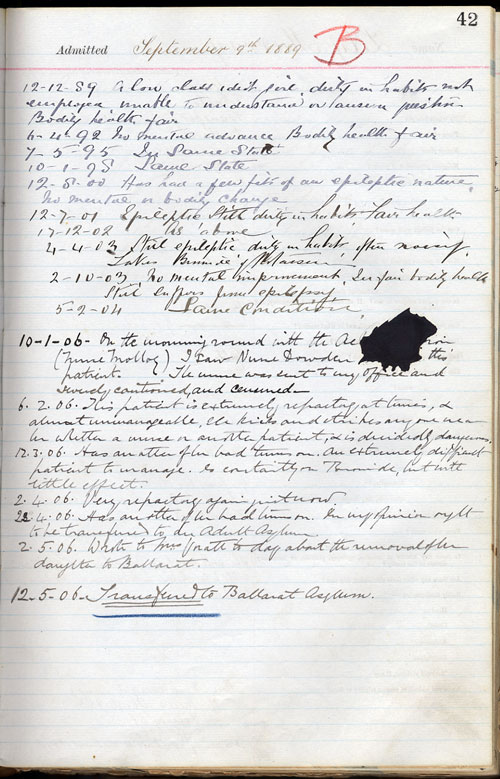 42
Admitted September 9th 1889 B
12-12-89 A low class idiot girl, dirty in habits not
employed, unable to understand or answer question
Bodily health fair
6-4-92 No mental advance Bodily health fair
7-5-95 In Same State
10-1-98 Same State
12-5-00 Has had a few fits of an epileptic nature,
No mental or bodily change
12-7-01 Epileptic Still dirty in habits fair health
17-12-02 As above
4-4-03 Still epileptic dirty in habits, often noisy,
Takes Bromide of Potassium
2-10-03 No mental improvement, In fair bodily health
Still suffers from epilepsy
5-2-04 Same Condition
10-1-06- On the morning round with the
(Nurse Molloy) I saw Nurse Dowden this
patient. The nurse was sent to my office and
severely cautioned, and censured-
6. 2. 06. This patient is extremely refractory at times, &
almost unmanageable, she kicks and strikes any one near
her whether a nurse or another patient, & is decidedly dangerous.
12.3.06. Has another of her bad turns on. An extremely difficult
patient to manage. Is constantly on Bromide, but with
little effect.
2. 4. 06. Very refractory again just now.
4. 06. Has another of her bad turns on. In my opinion ought
to be transferred to an Adult Asylum
2. 5. 06. Wrote to Mrs to day about the removal of her
daughter to Ballarat.
12. 5. 06. Transferred to Ballarat Asylum.